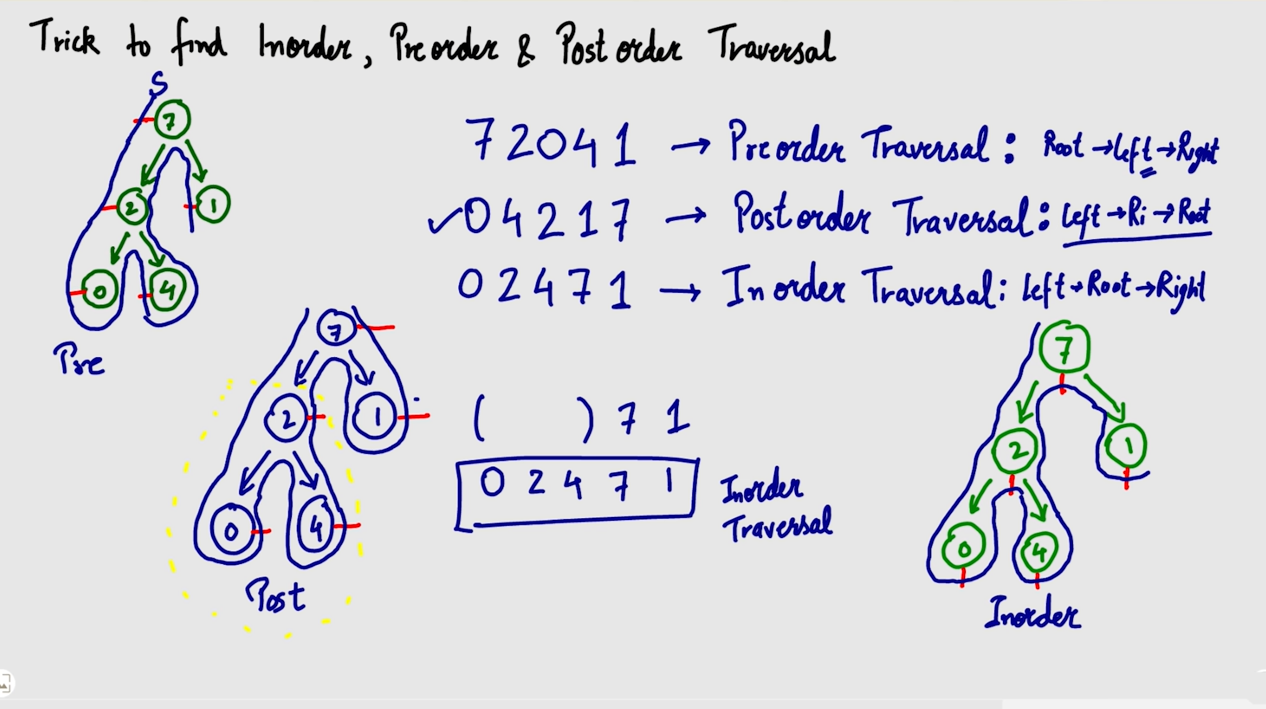 Trick to find Inorder, Preorder & Postorder Traversal
S
7
2
1
0
4
Pre
7 2 0 4 1 → Preorder Traversal : Root → left → Right
✓ 0 4 2 1 7 → Postorder Traversal : left → Ri → Root
0 2 4 7 1 → Inorder Traversal : left → Root → Right
7
2
1
0
4
Post
( ) 7 1
0 2 4 7 1
Inorder
Traversal
7
2
1
0
4
Inorder